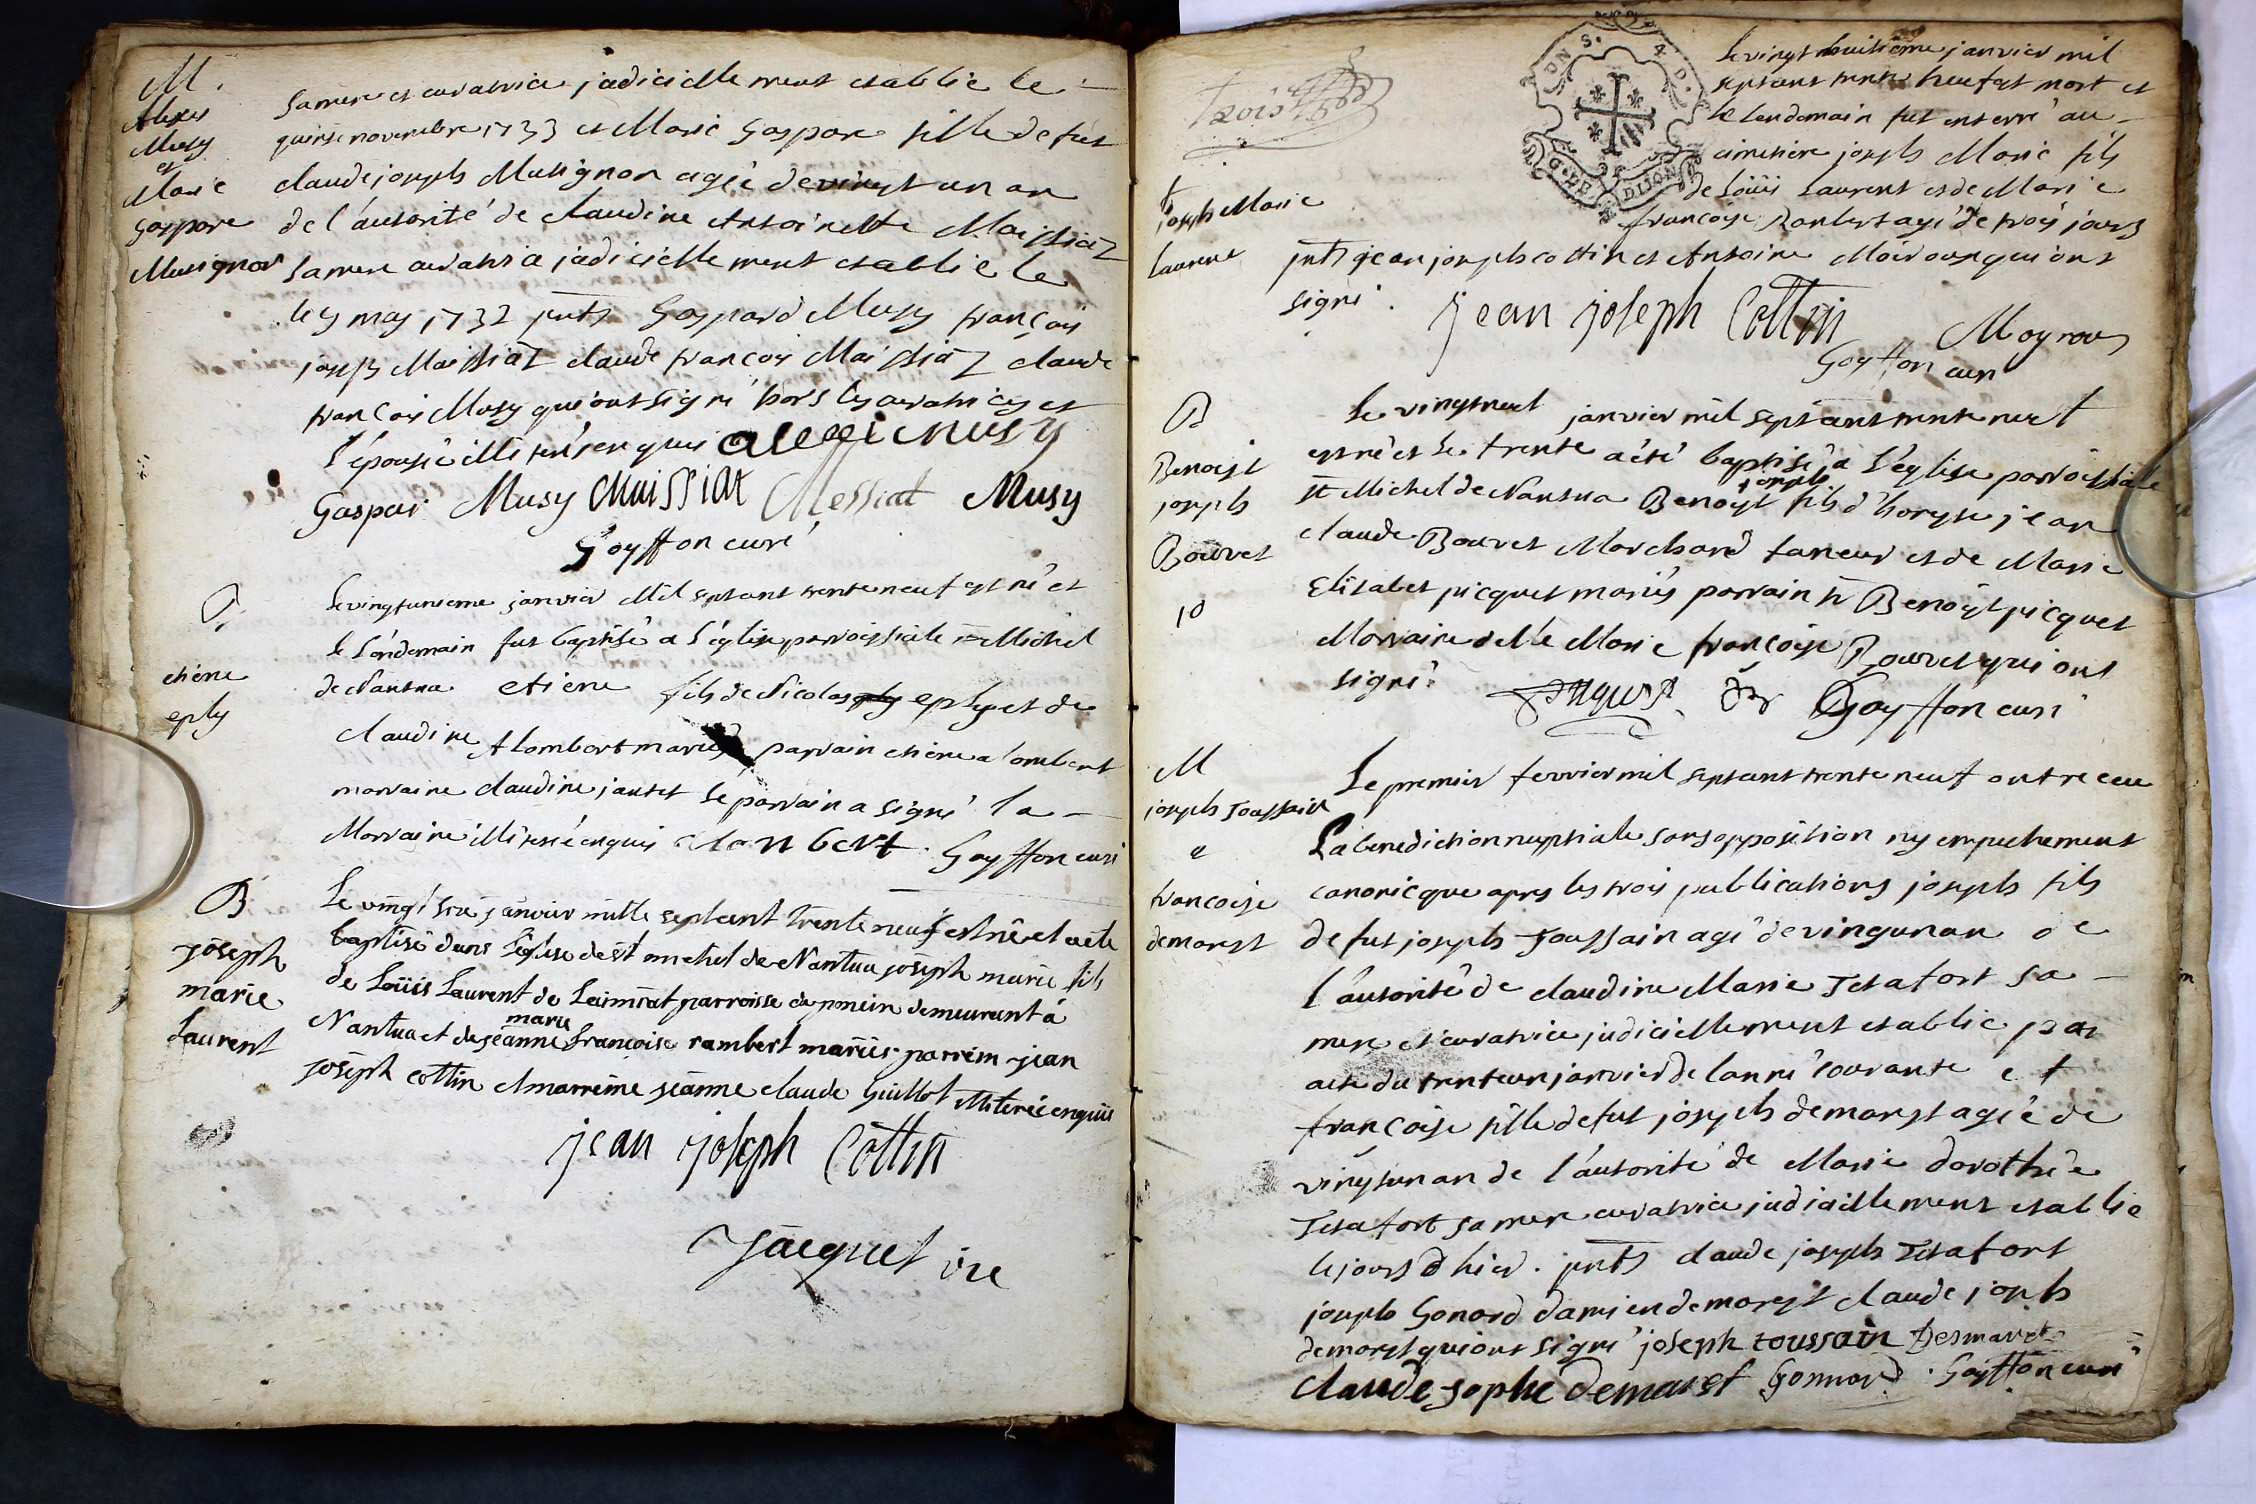 M.
Alexis
Musy
et
Marie
Gaspare
Musignon
sa mere et curatrice judiciellement establie le
quinse novembre 1733 et Marie Gaspare fille de fut
claude joseph Musignon agée de vingt un an
de l'autorité de claudine Antoinette Maissiaz
sa mere curatrice judiciellement establie le
le 9 may 1732 pnts Gaspard Musy françois
joseph Maissiaz claude françois Maissiaz claude
françois Musy qui ont signé hors les curatrices et
l'épouse illiteré enquis alexi musy
Gaspar Musy Maissiat Messiat Musy
Goyffon curé
B
etiene
eply
le vingtunieme janvier Mil septant trente neuf est né et
le lendemain fut baptisé a l'église parroissiale st Michel
de Nantua etiene fils de Nicolas eply et de
claudine Alombert mariés parrain etiene alombert
marraine claudine jantet le parrain a signé la
Marraine illiterée enquis alonbert. Goyffon curé
B
joseph
marie
Laurent
Le vingt six janvier mille septcent trente neuf est né et a été
baptisé dans l'église de st michel de Nantua joseph marie fils
de Loüis Laurent de Leimiat parroisse de poncin demeurant à
marie
Nantua et de jeanne françoise rambert mariés parrein jean
joseph cottin et marreine jeanne claude Guillot illiterée enquis
jean joseph Cottin
Jacquet vre
trois
G. DE DIJON
le vingt huitieme janvier mil
septant trente neuf est mort et
le lendemain fut enterré au
cimetiere joseph Marie fils
de Loüis Laurent et de Marie
françoise Ranbert agé de trois jours
† joseph Marie
laurent
pnts jean joseph cottin et Antoine Moiroux qui ont
signé.
jean joseph Cottin
Moyroux
Goyffon curé
B
Benoist
joseph
Bouvet
10
Le vingtneuf janvier mil septant trente neuf
est né et le trente a été baptisé a l'eglise parroissiale
joseph
st Michel de Nantua Benoyt fils d'honeste jean
claude Bouvet Marchand taneur et de Marie
Elisabet picquet mariés parrain sr Benoyt picquet
Marraine delle Marie françoise Bouvet qui ont
signé. Goyffon curé
M
joseph Toussain
e
françoise
demarest
Le premier fevrier mil septant trente neuf ont receu
La benediction nuptiale sans opposition ny empechement
canonicque apres les trois publications joseph fils
de fut joseph Toussain agé de vingunan de
l'autorité de claudine Marie Tetafort sa
mere et curatrice judiciellement establie par
acte du trenteun janvier de l'anné courante et
françoise fille de fut joseph demarest agée de
vingtunan de l'autorité de Marie dorothée
Tetafort sa mere curatrice judiciellement establie
le jours d hier. pnts claude joseph Tetafort
joseph Gonard damien demarest claude joseph
demarest qui ont signé joseph toussain Desmaret
claude Jophe demarest Gonnard. Goyffon curé